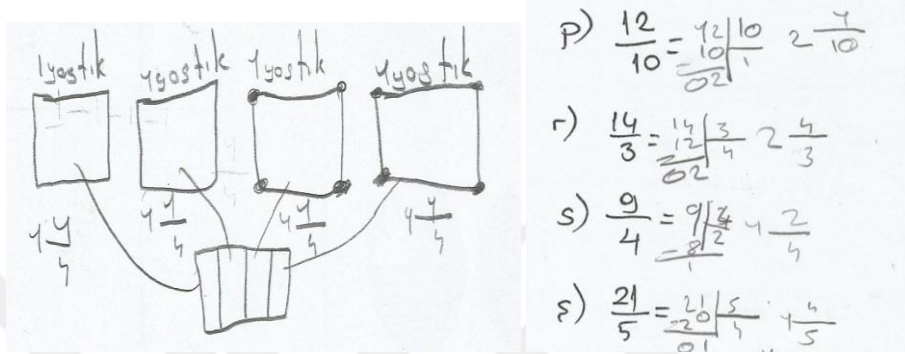 1yostik 1yostik 1yostik 1yostik
1 1/4 1 1/4 1 1/4 1 1/4
p) 12/10 = 12 10 2 1/10
10 1
02
r) 14/3 = 14 3 2 4/3
12 4
02
s) 9/4 = 9 4 1 2/4
-8 2
1
ş) 21/5 = 21 5 1 4/5
-20 4
01